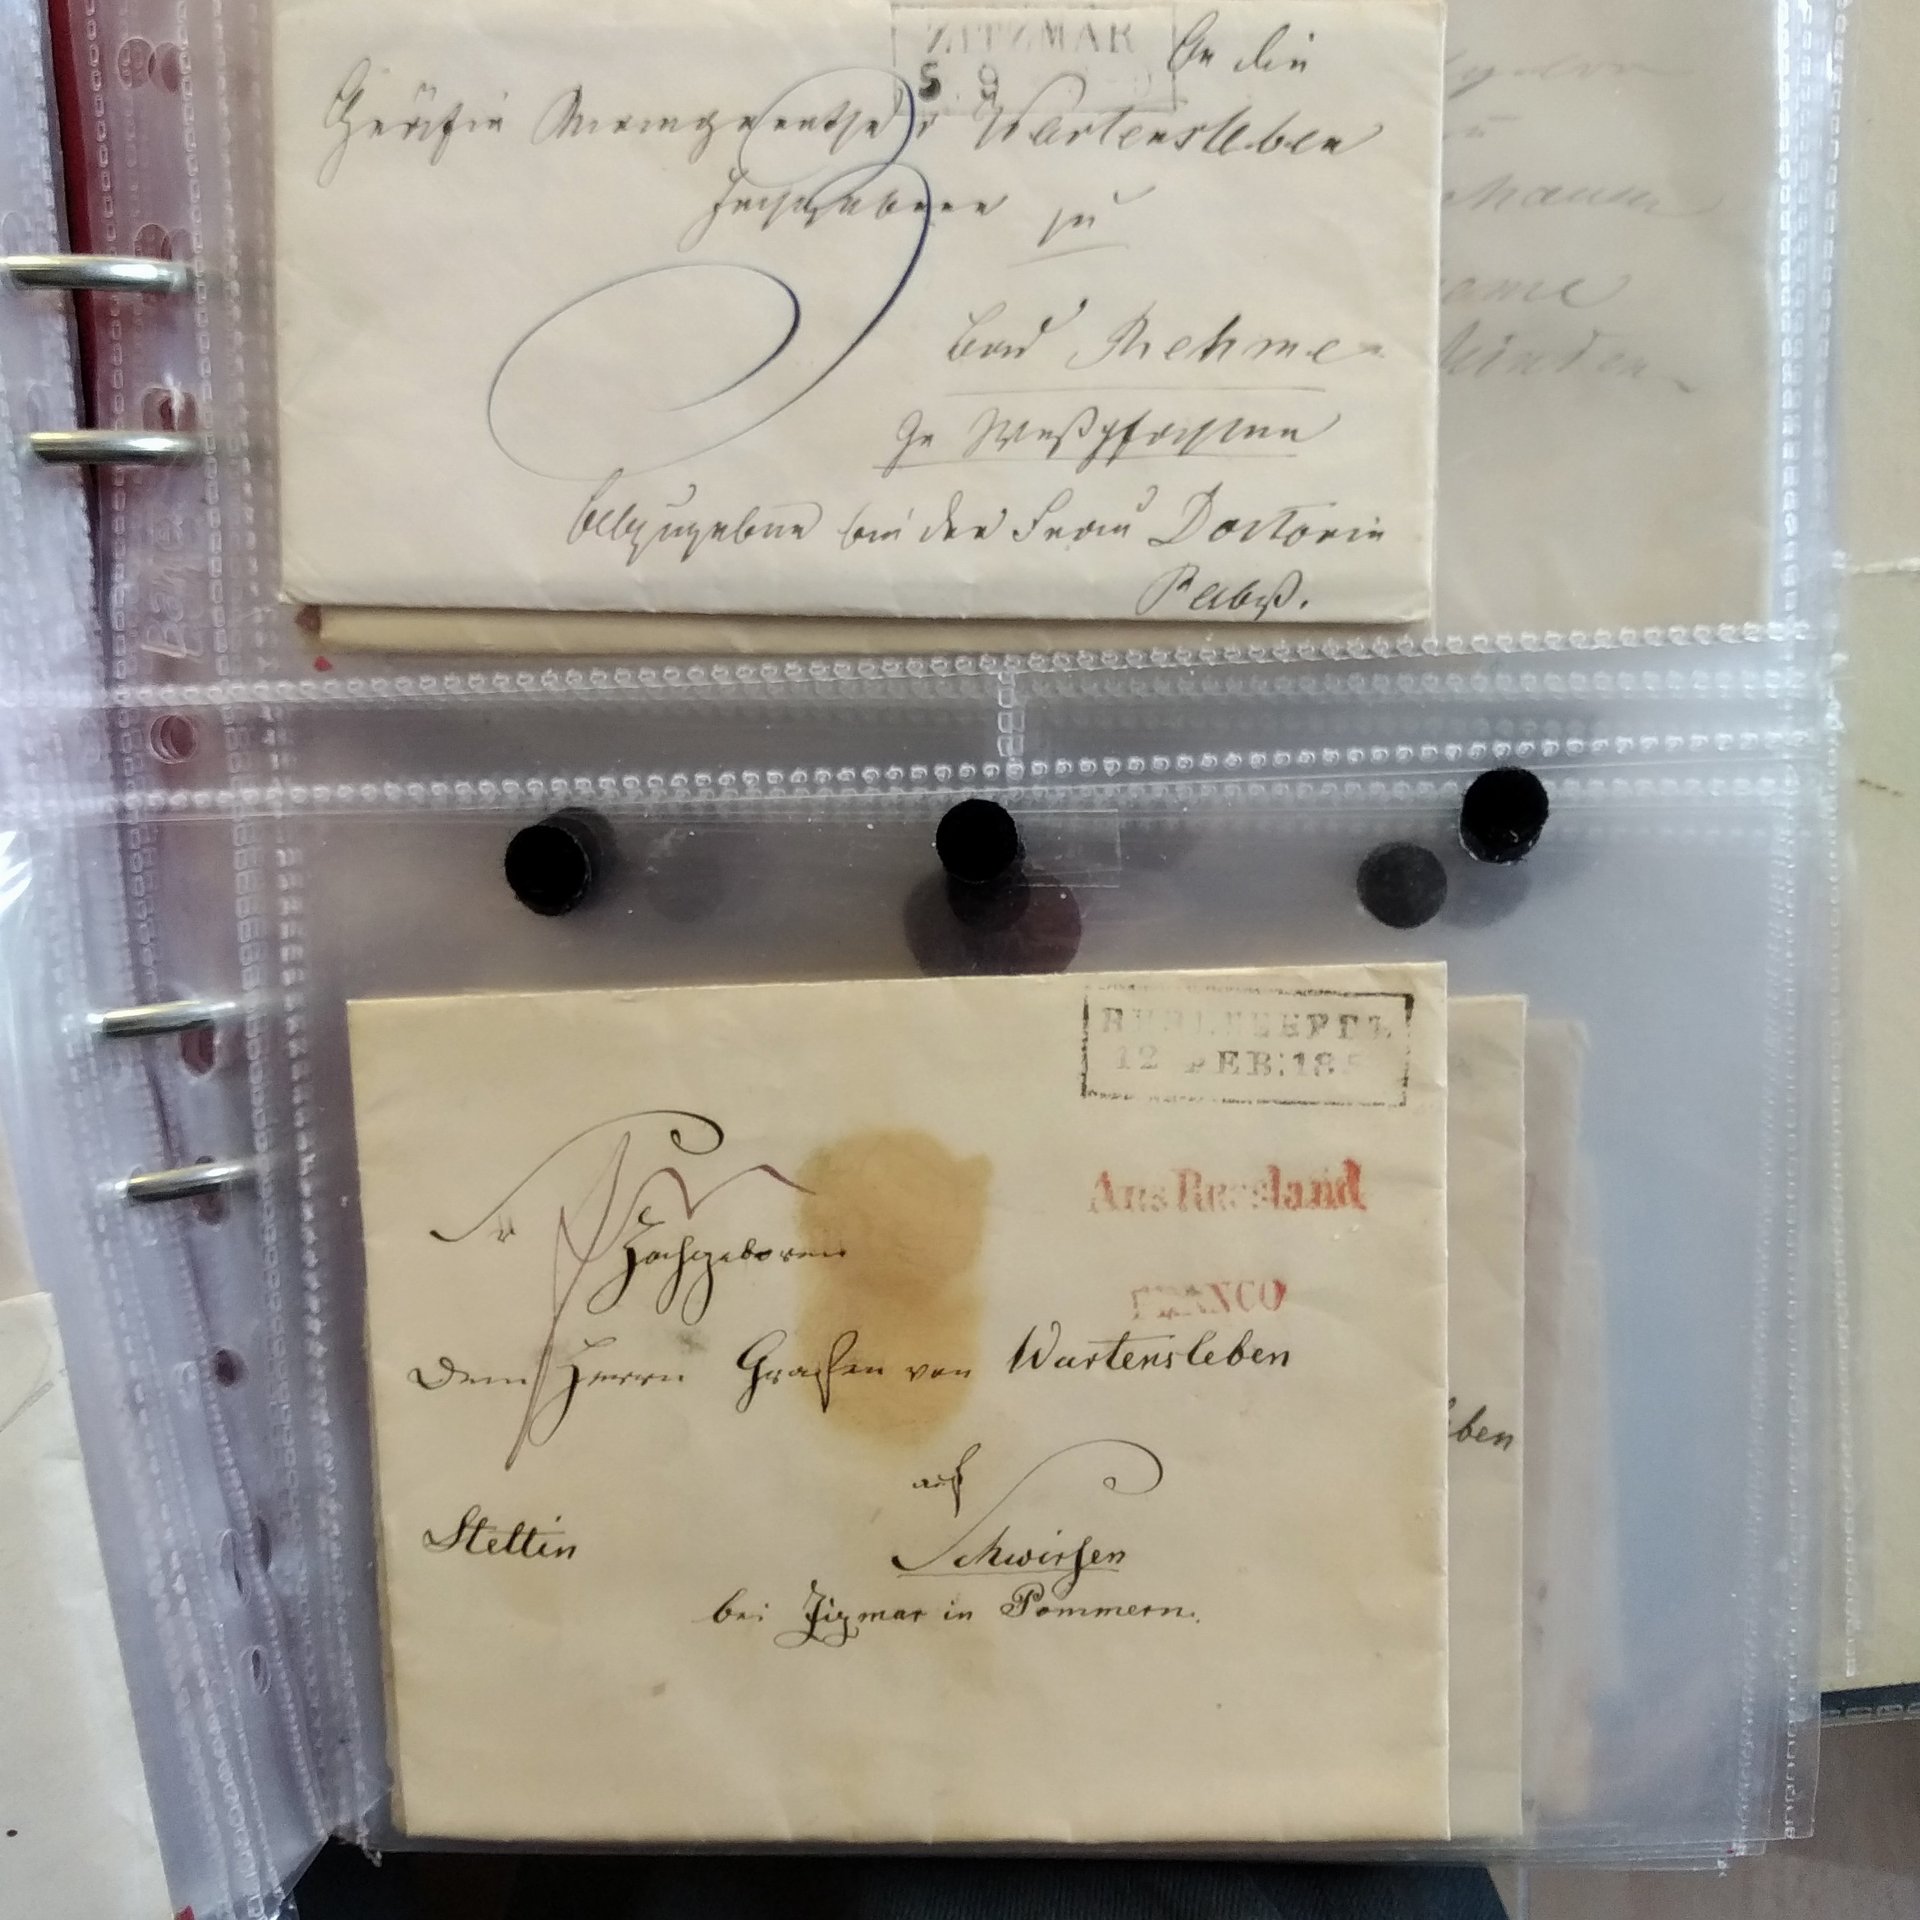 ZITZMAR
5 9
An die
Gräfin Wartensleben
zu
Bad Rehme
In Westphalen
abzugeben bei der Frau Doctorin
Pabst.
12 FEB: 18
Aus Russland
FRANCO
Hochgeboren
Dem Herrn Grafen von Wartensleben
auf
Stettin
Schwirsen
bei Zizmar in Pommern.
ben